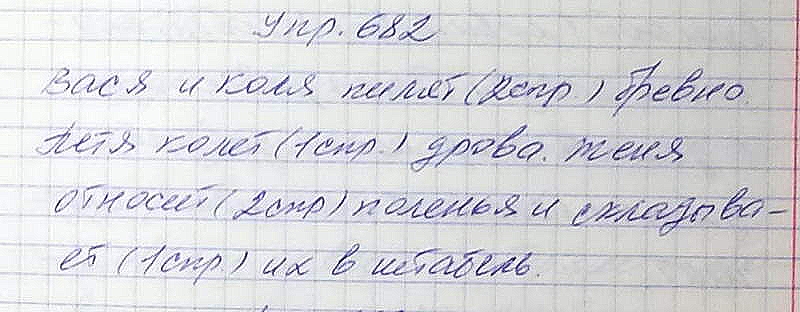 Упр. 682
Вася и Коля пилят (2спр.) бревно.
Петя колет (1спр.) дрова. Женя
относит (2спр) поленья и складыва-
ет (1спр) их в штабель.